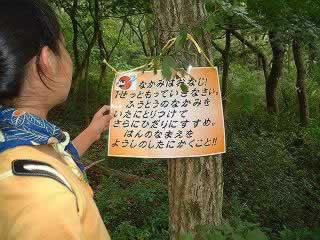 なかみはおなじ!
1せっともっていきなさい。
ふうとうのなかみを
いたにとりつけて
さらにひだりにすすめ。
はんのなまえを
ようしのしたにかくこと!!